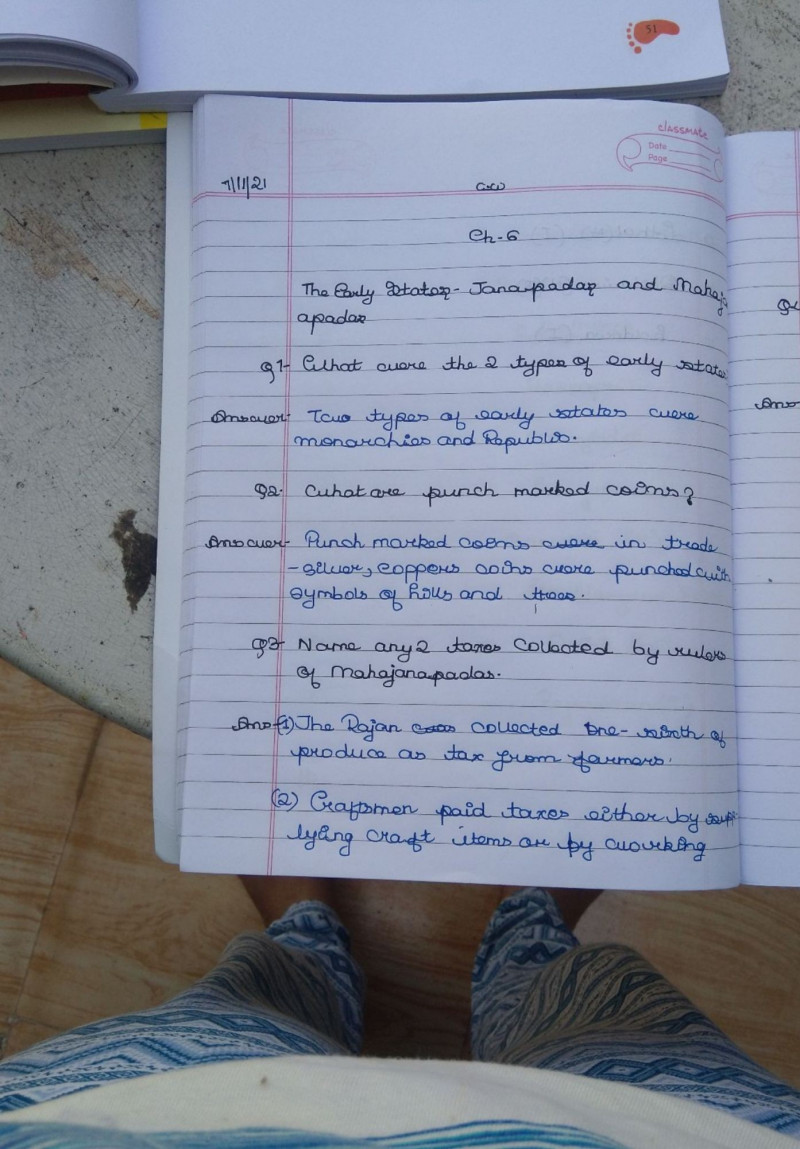 51
classmate
Date
Page
7/11/21
C.W
Ch-6
The Early States- Janapadas and Mahaj
apadas
Q1- What were the 2 types of early states
Answer- Two types of early states were
monarchies and Republis.
Q2- What are punch marked coins?
Answer- Punch marked coins were in trade
-silver, coppers coins were punched with
symbols of hills and trees.
Q3- Name any 2 taxes collected by rulers
of Mahajanapadas.
Ans-(1) The Rajan collected one-sixth of
produce as tax from farmers.
(2) Craftsmen paid taxes either by supp
lying craft items or by working
Q4
Ans